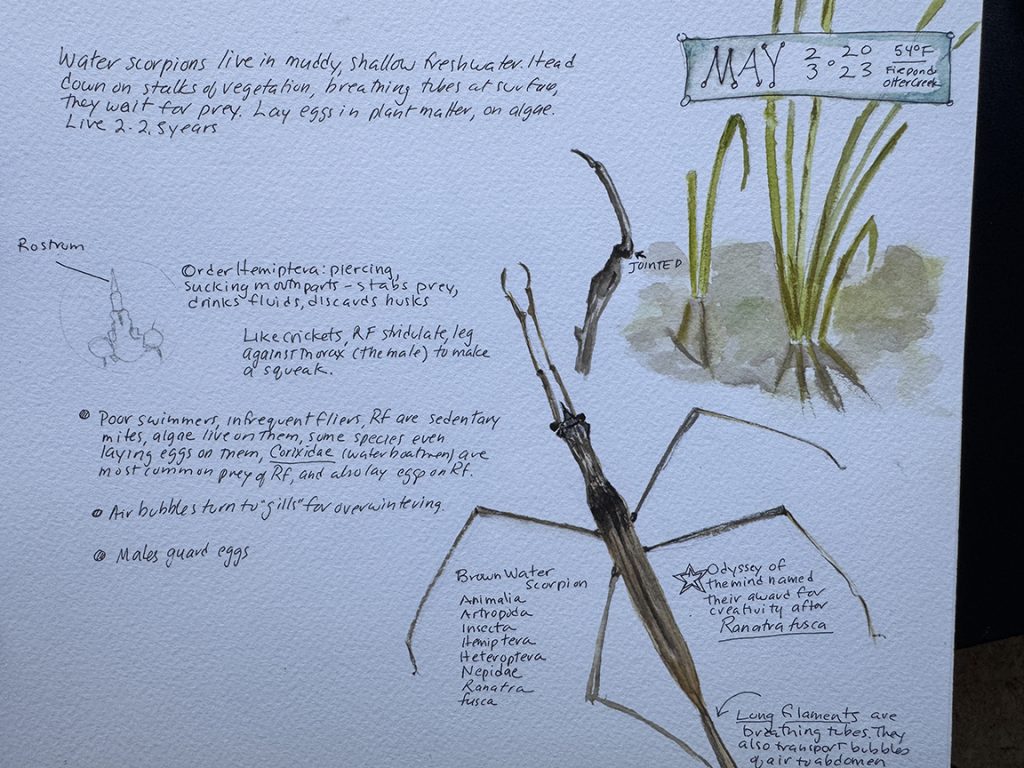 Water scorpions live in muddy, shallow freshwater. Head
down on stalks of vegetation, breathing tubes at surface,
they wait for prey. Lay eggs in plant matter, on algae.
Live 2-2.5 years
MAY 2 3 ° 20 23
54°F
Fire pond
otter creek
Rostrum
Order Hemiptera: piercing,
sucking mouthparts – stabs prey,
drinks fluids, discards husks
JOINTED
Like crickets, RF stridulate, leg
against thorax (the male) to make
a squeak.
Poor swimmers, infrequent fliers, Rf are sedentary
mites, algae live on them, some species even
laying eggs on them, Corixidae (water boatmen) are
most common prey of Rf, and also lay eggs on Rf.
Air bubbles turn to "gills" for overwintering.
Males guard eggs
Brown Water
Scorpion
Animalia
Artropoda
Insecta
Hemiptera
Heteroptera
Nepidae
Ranatra
fusca
Odyssey of
the mind named
their award for
creativity after
Ranatra fusca
Long filaments are
breathing tubes. They
also transport bubbles
of air to abdomen